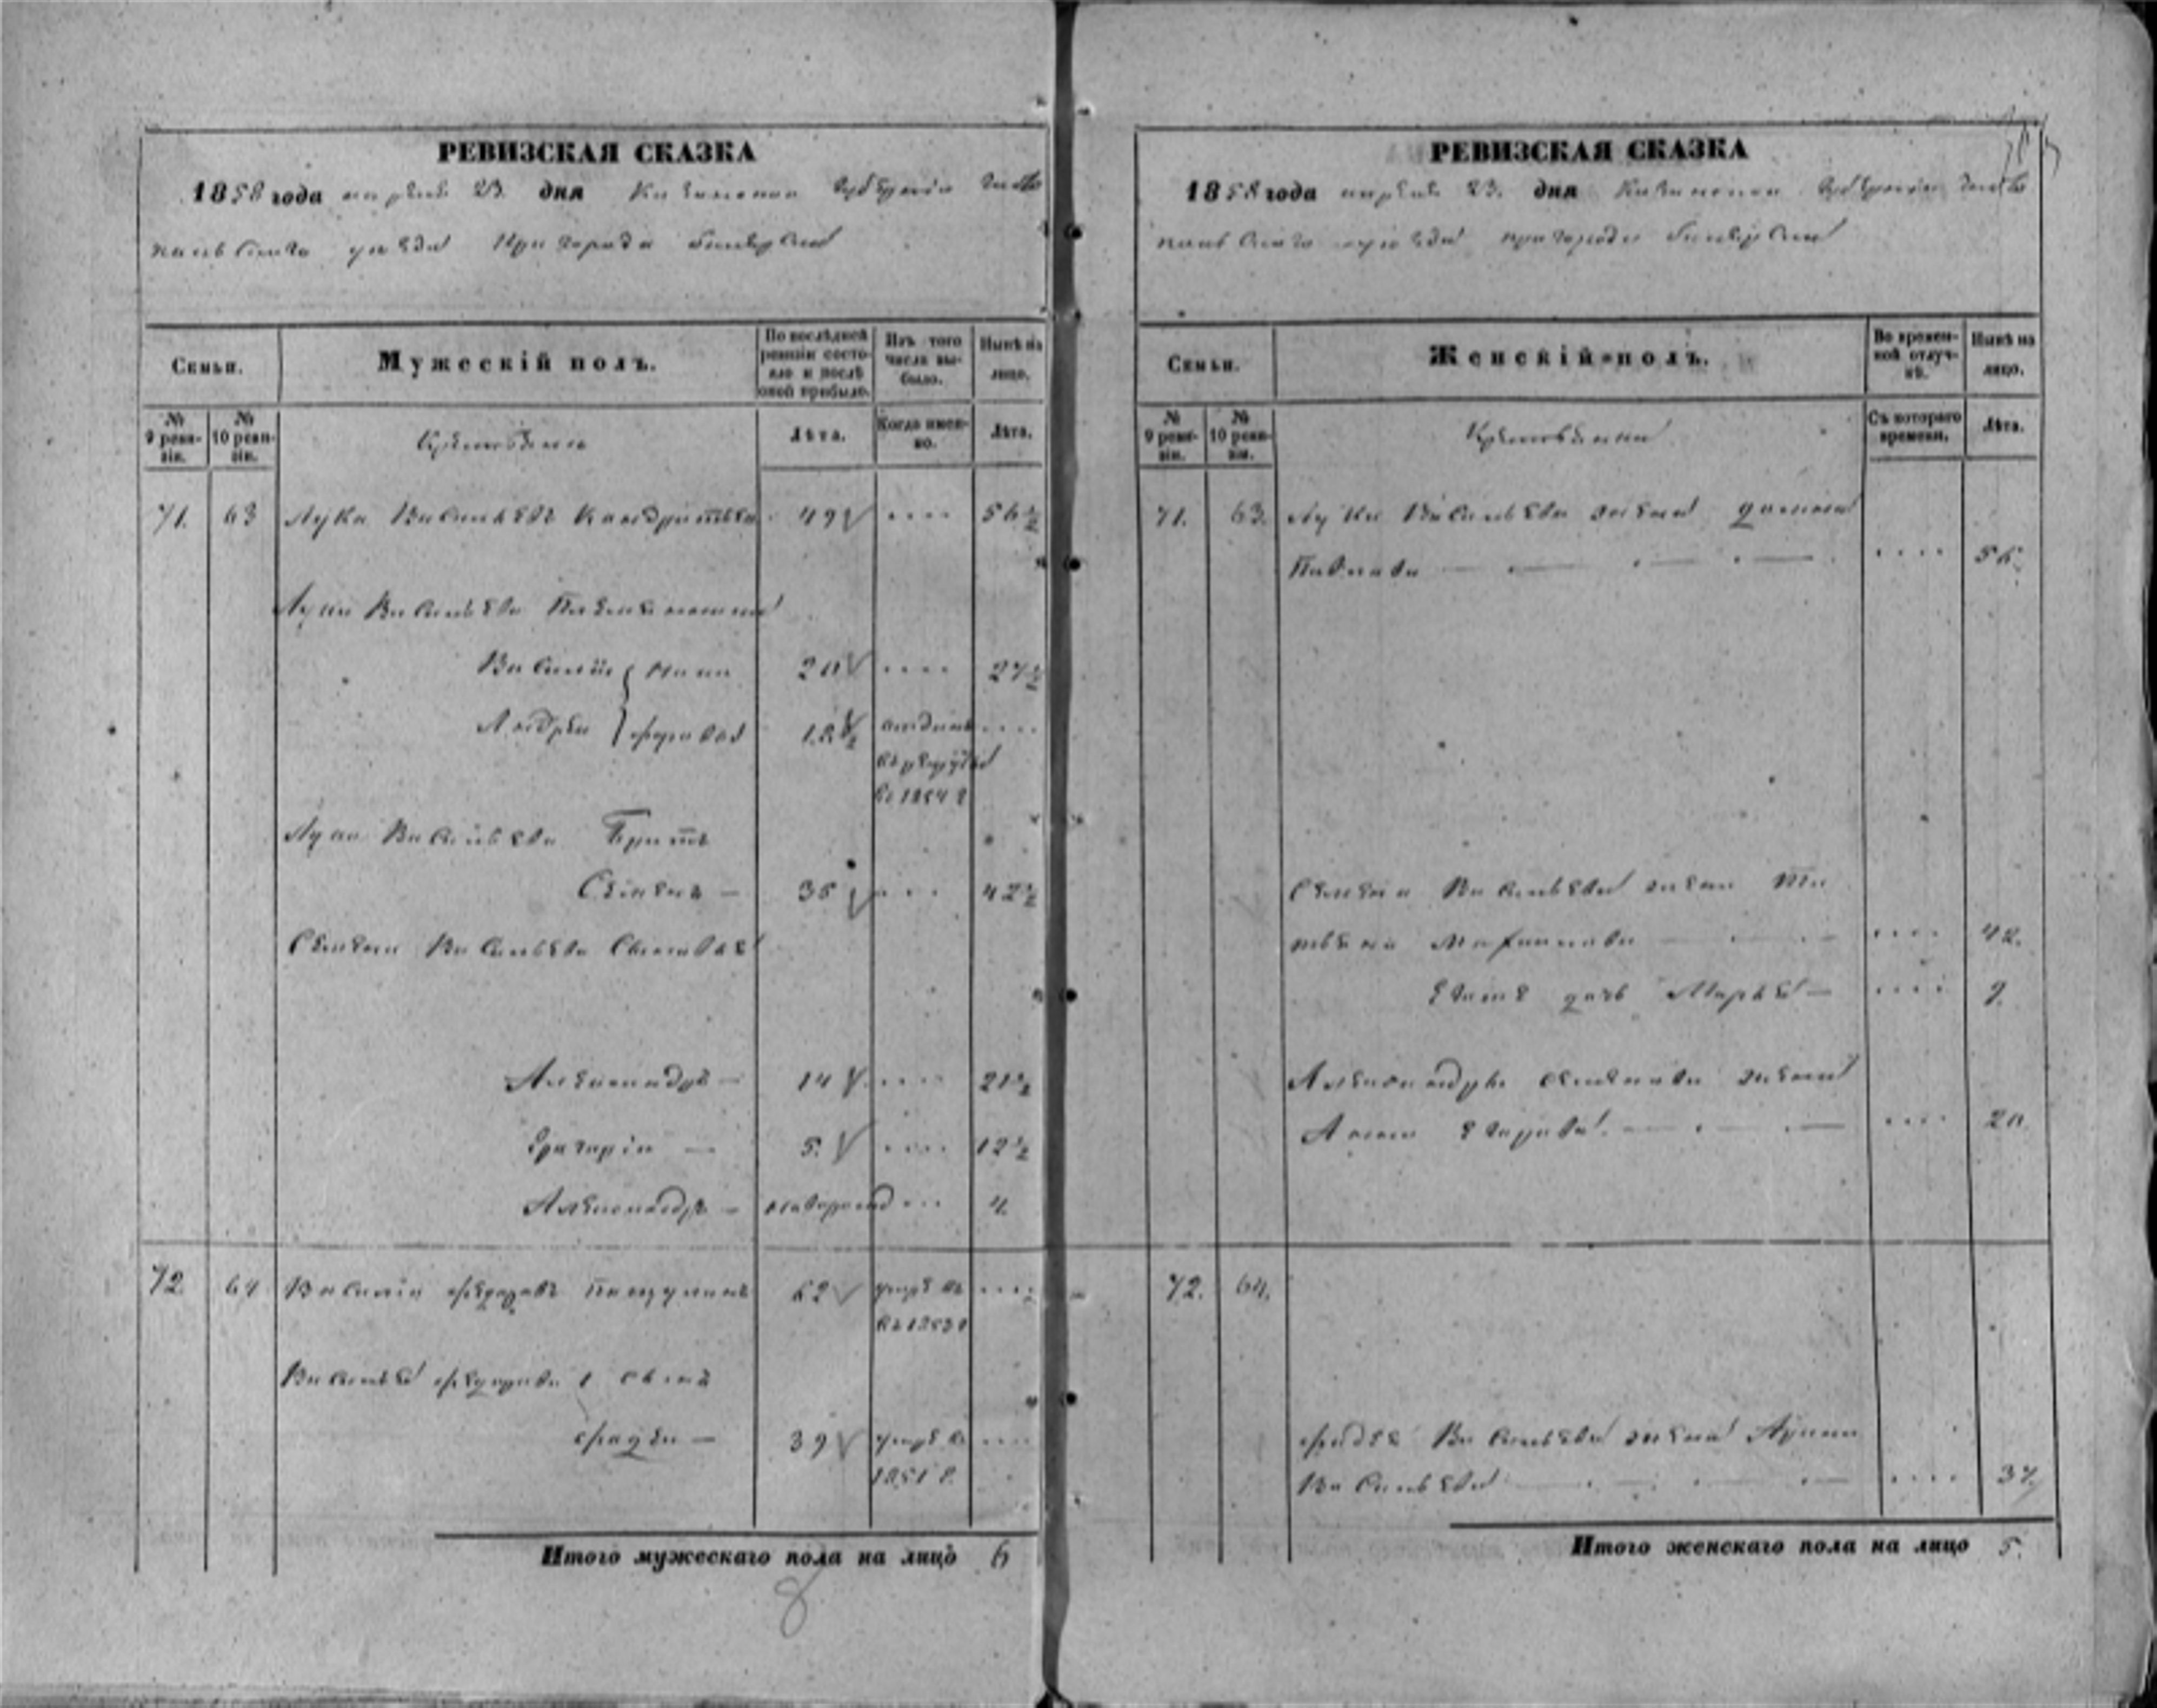 РЕВИЗСКАЯ СКАЗКА
1858 года апреля 23. дня Казанской Губернии Чисто
польскаго уезда Пригорода Билярска
Семьи.
Мужескій полъ.
По послѣдней ревизіи состояло и послѣ оной прибыло.
Изъ того числа выбыло.
Нынѣ на лицо.
№ 9 ревизіи.
№ 10 ревизіи.
Лѣта.
Когда именно.
Лѣта.
71. 63 Лука Васильевъ 49 .... 56½
Луки Васильева
Василій 20 .... 27½
Андрей 12½ отданъ ....
въ рекруты
въ 1854 г
Луки Васильева Братъ
Семенъ — 35 ... 42½
Семена Васильева Сыновья
Александръ — 14 .... 21½
Григорій — 5. .... 12½
Александръ — новорожд ... 4.
72 64 Василій Федоровъ 62 умре въ ....
въ 1853 г
Василья Федорова 1 сынъ
Фадей — 39 умре въ ....
1851 г.
Итого мужескаго пола на лицо 6
8
РЕВИЗСКАЯ СКАЗКА
1858 года апреля 23. дня Казанской Губернии Чисто
польскаго уезда пригорода Билярска
Семьи.
Женскій полъ.
Во временной отлучкѣ.
Нынѣ на лицо.
№ 9 ревизіи.
№ 10 ревизіи.
Съ котораго времени.
Лѣта.
71. 63. Луки Васильева жена
Павлова .... 56.
Семена Васильева жена Та
тьяна .... 42.
дочь Марья — .... 9.
Александра Семенова жена
Анна Егорова. .... 20
72. 64.
Фадея Васильева жена Арина
Васильева .... 37
Итого женскаго пола на лицо 5.